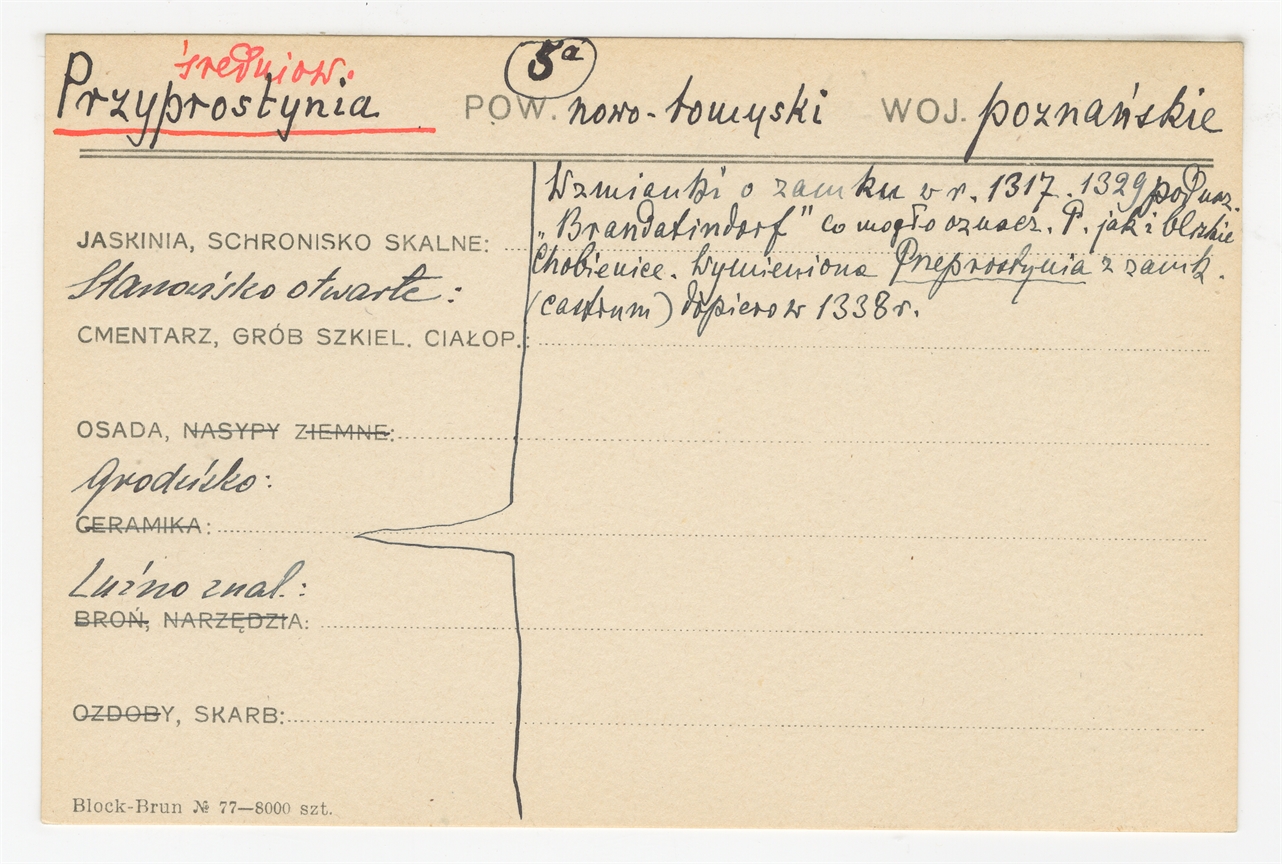 średniow.
5a
Przyprostynia POW. nowo-tomyski WOJ. poznańskie
Wzmianki o zamku w r. 1317. 1329 pod naz.
JASKINIA, SCHRONISKO SKALNE:
„Brandatindorf" co mogło oznacz. P. jak i blizkie
Stanowisko otwarte:
Chobienice. Wymieniona Pneprostynia z zamk.
(castrum) dopiero w 1338 r.
CMENTARZ, GRÓB SZKIEL. CIAŁOP.:
OSADA, NASYPY ZIEMNE:
Grodzisko:
CERAMIKA:
Luźno znal.:
BROŃ, NARZĘDZIA:
OZDOBY, SKARB:
Block-Brun № 77—8000 szt.